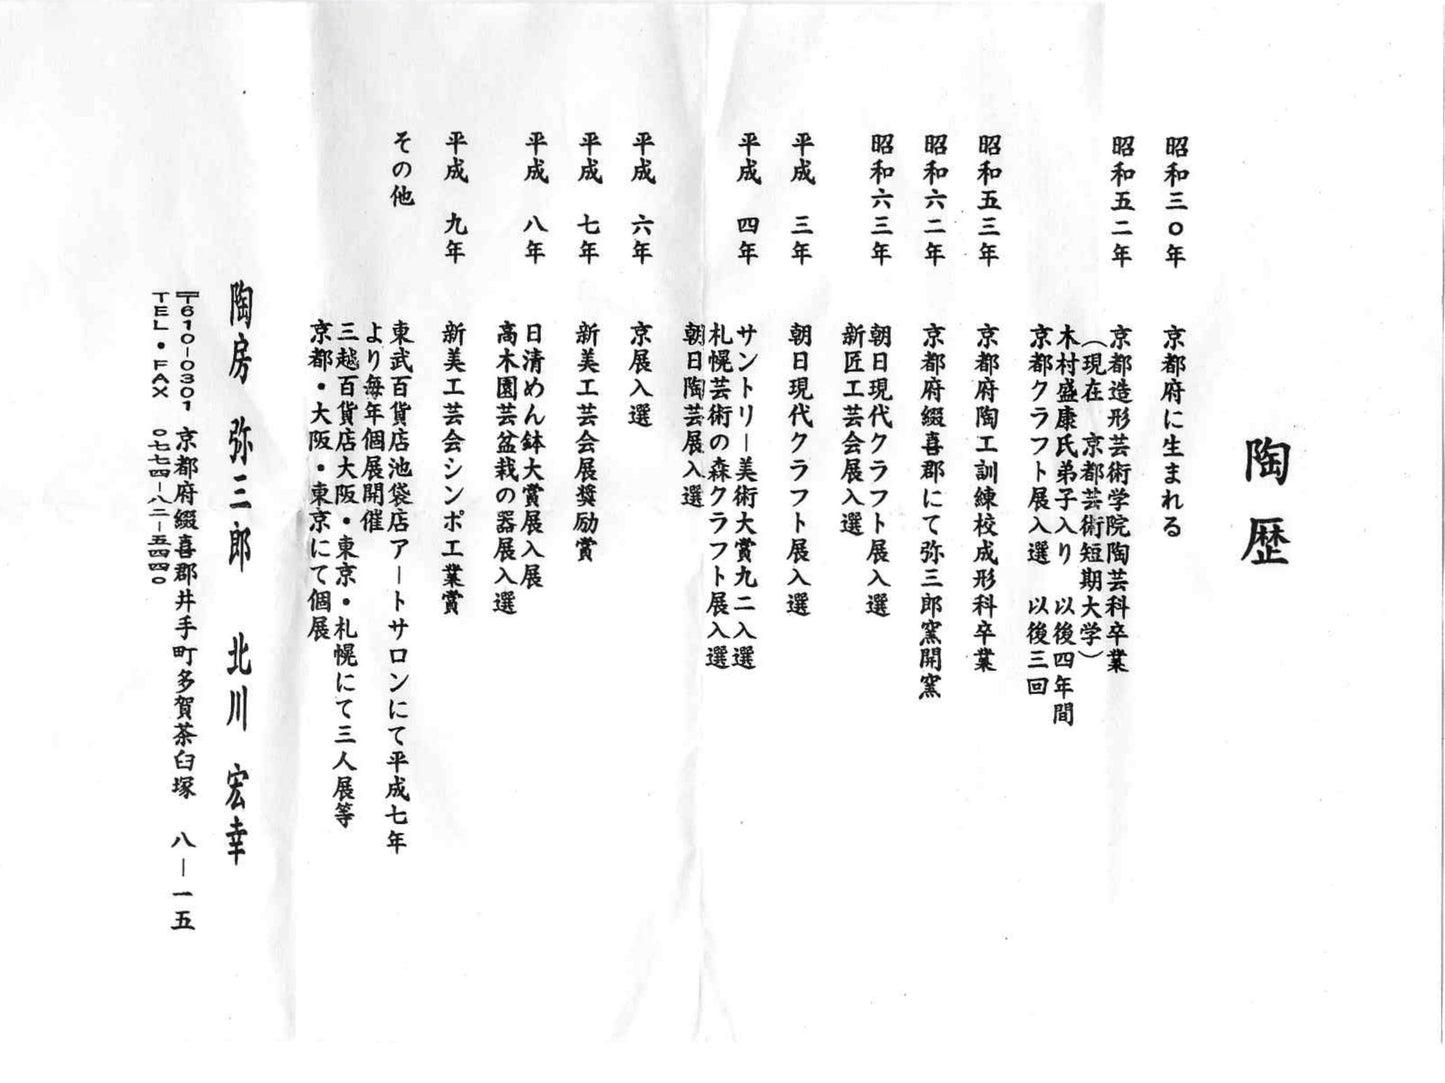 陶歴
昭和三〇年 京都府に生まれる
昭和五二年 京都造形芸術学院陶芸科卒業
(現在 京都芸術短期大学)
木村盛康氏弟子入り 以後四年間
京都クラフト展入選 以後三回
昭和五三年 京都府陶工訓練校成形科卒業
昭和六二年 京都府綴喜郡にて弥三郎窯開窯
昭和六三年 朝日現代クラフト展入選
新匠工芸会展入選
平成 三年 朝日現代クラフト展入選
平成 四年 サントリー美術大賞九二入選
札幌芸術の森クラフト展入選
朝日陶芸展入選
平成 六年 京展入選
平成 七年 新美工芸会展奨励賞
平成 八年 日清めん鉢大賞展入展
高木園芸盆栽の器展入選
平成 九年 新美工芸会シンポ工業賞
その他 東武百貨店池袋店アートサロンにて平成七年
より毎年個展開催
三越百貨店大阪・東京・札幌にて三人展等
京都・大阪・東京にて個展
陶房 弥三郎 北川 宏幸
〒610-0301 京都府綴喜郡井手町多賀茶臼塚 八ー一五
TEL・FAX 〇七七四ー八二ー五四四〇